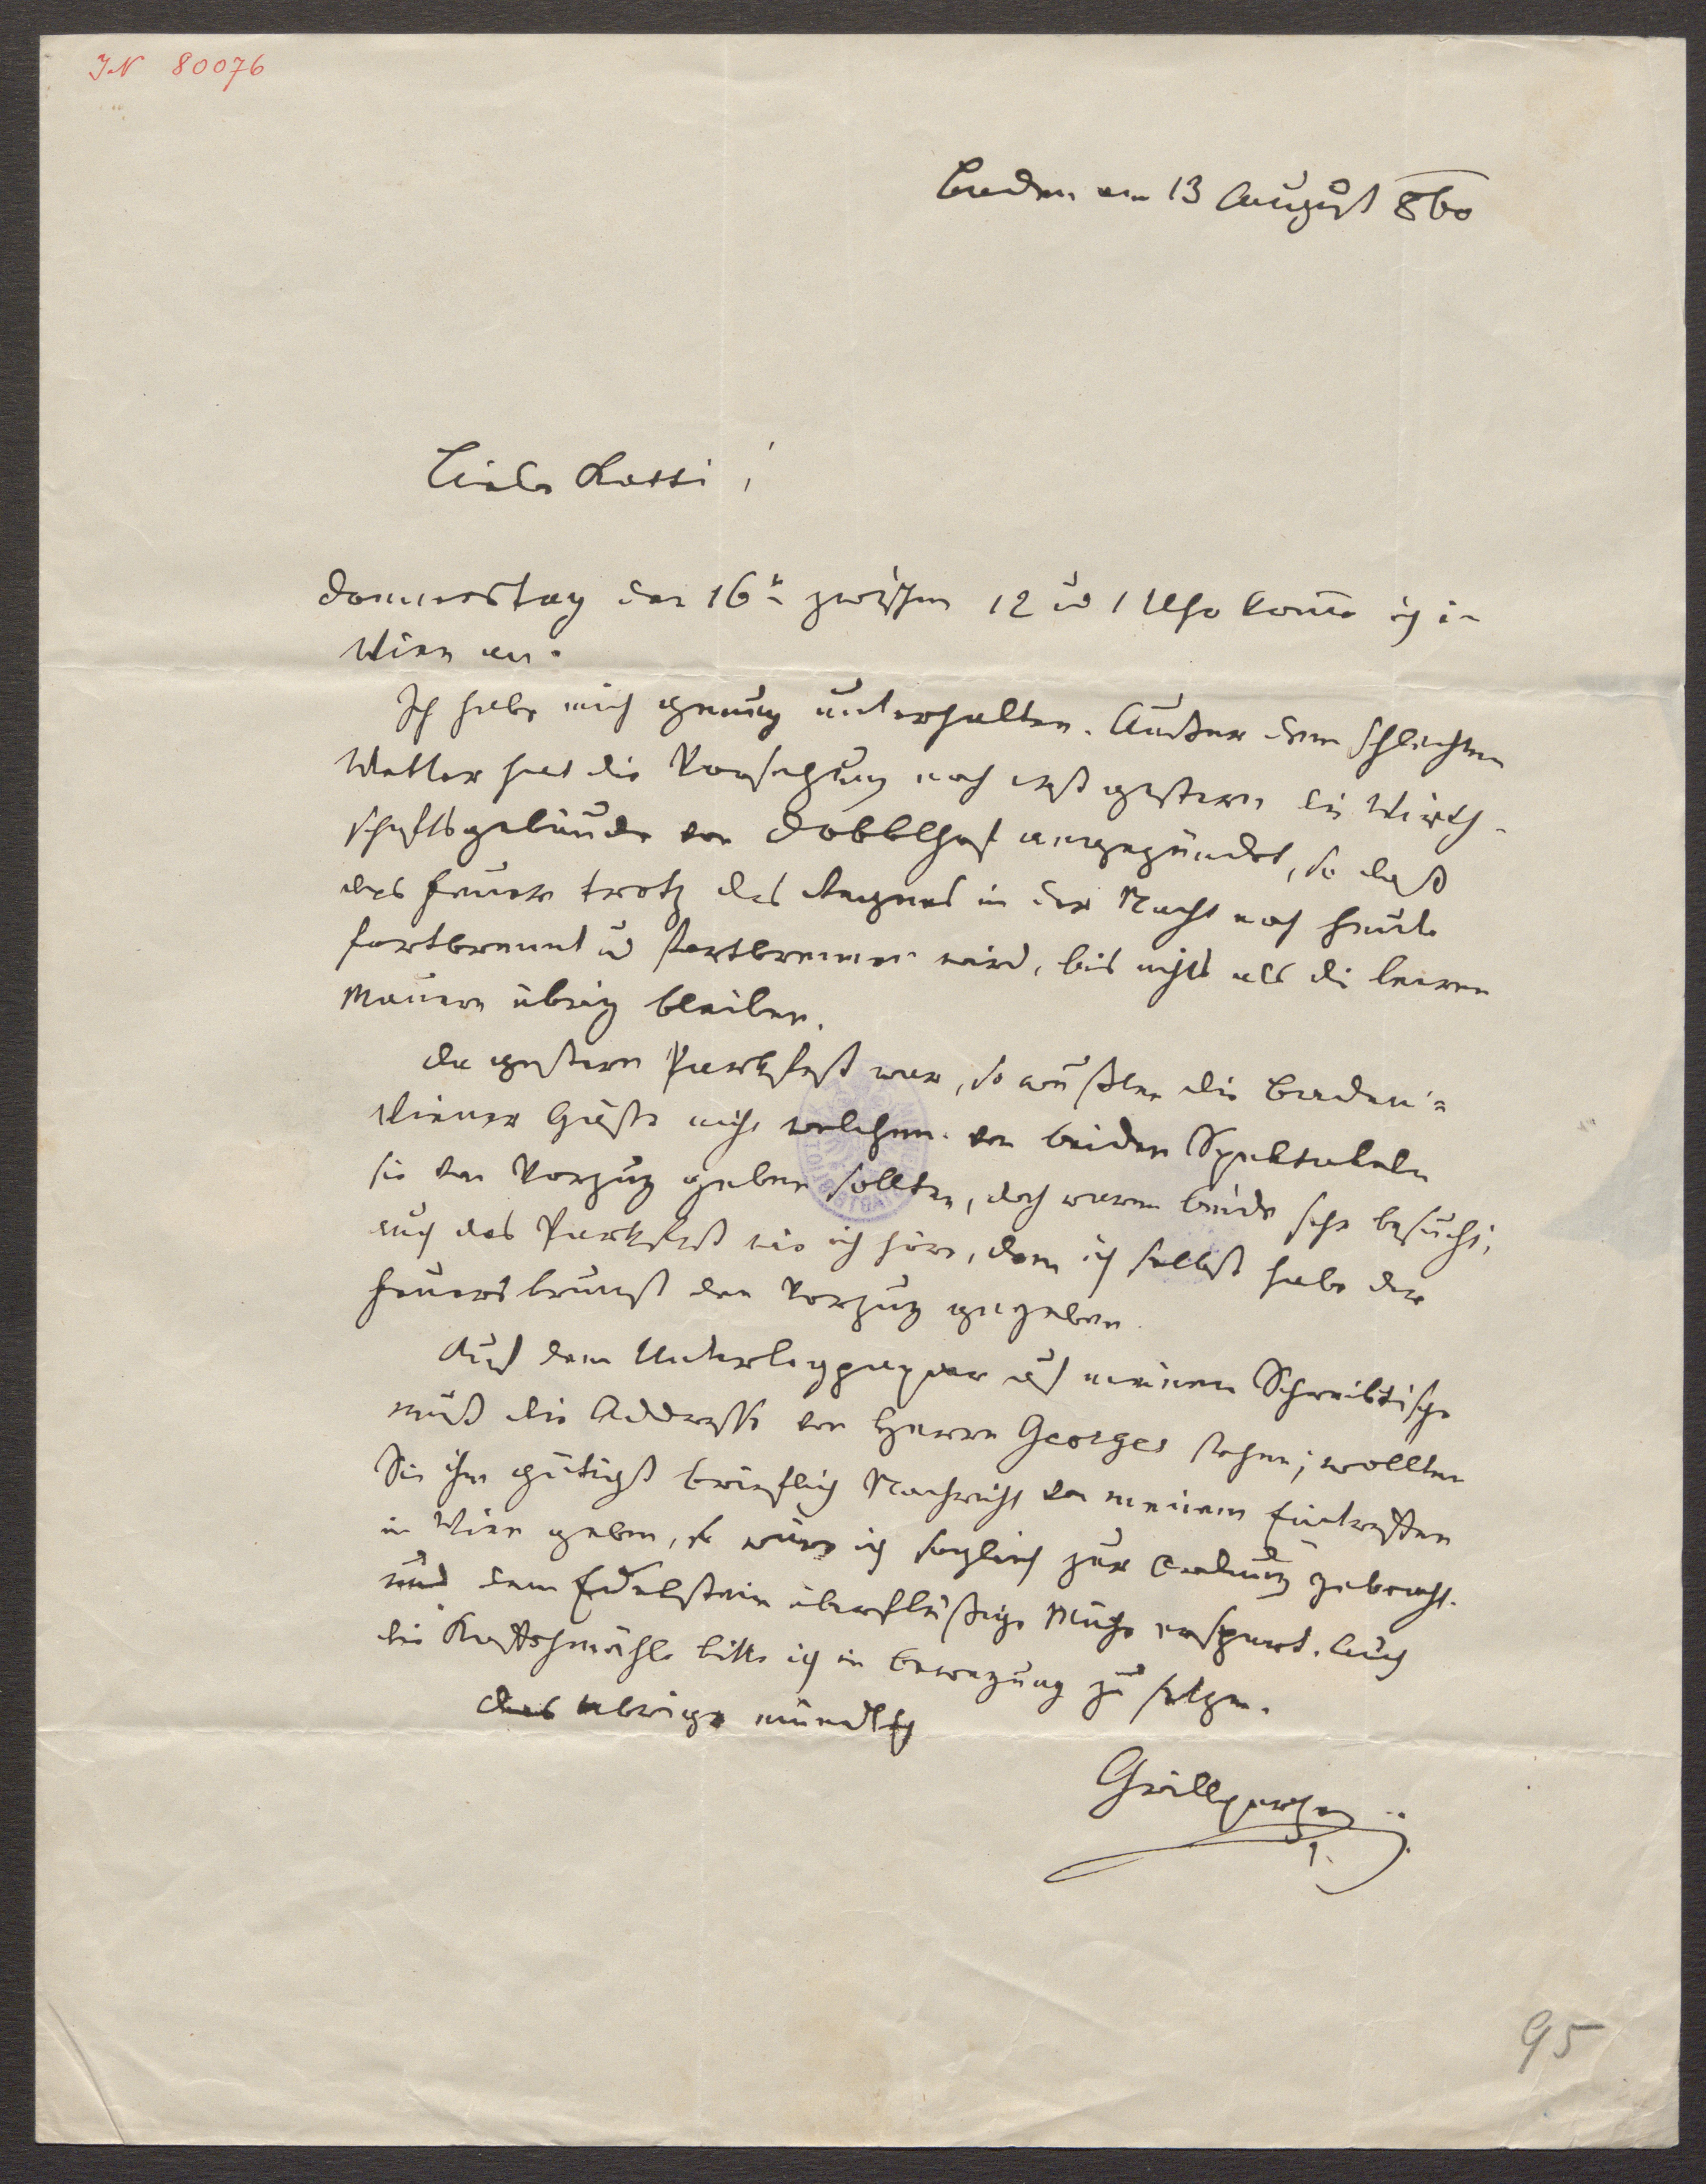 IN 80076
Baden am 13 August 860
Liebe Katti!
Donnerstag den 16t zwischen 12 und 1 Uhr komme ich in
Wien an.
Ich habe mich genug unterhalten. Außer dem schlechten
Wetter hat die Vorsehung noch erst gestern die Wirth-
schaftsgebäude von Dobblhof angezündet, so daß
das Feuer trotz des Regens in der Nacht noch heute
fortbrennt und fortbrennen wird, bis nichts als die leeren
Mauern übrig bleiben.
Da gestern Parkfest war, so wußten die Baden-
Wiener Gäste nicht welchem von beiden Spektakeln
sie den Vorzug geben sollten, doch waren beide sehr besucht,
auch das Parkfest wie ich höre, denn ich selbst habe der
Feuersbrunst den Vorzug gegeben.
Auf dem Unterlegpapier auf meinem Schreibtische
muß die Addresse von Herrn Georges stehen; wollten
Sie ihm gütigst brieflich Nachricht von meinem Eintreffen
in Wien geben, so wäre ich sogleich zur Ordnung gebracht.
und dem Edelstein überflüßige Mühe erspart. Auch
die Kaffehmühle bitte ich in Bewegung zu setzen.
Das Übrige mündlich
Grillparzer
95